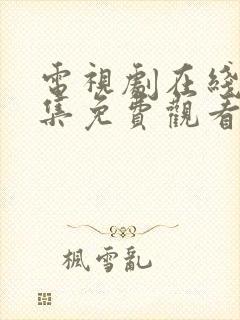 電視劇在綫
集免費觀看
楓雪亂